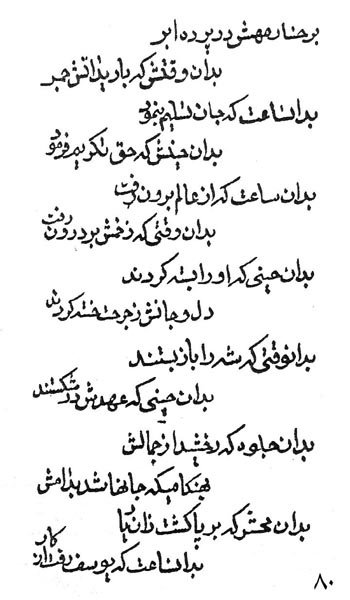 بر حنار مهش در پرده ابر
بدان وقتش که بار یدانش جبر
بدان ساعت که جان تسلیم بنمود
بدان حینش که حق تکریم فرمود
بدان ساعت که از عالم برون رفت
بدان وقتی که زخمش بر درون رفت
بدان حینی که او را بسته کردند
دل و جانش ز جرحت خسته کردند
بدانوقتی که شه را باز بستند
بدان حینی که عهدش در شکستند
بدان جلوه که رخشید از جمالش
بهنگامیکه جانها شد بدامش
بدان محشر که بر پا گشت زان
بدان ساعت که یوسف رفت از کار
۸۰